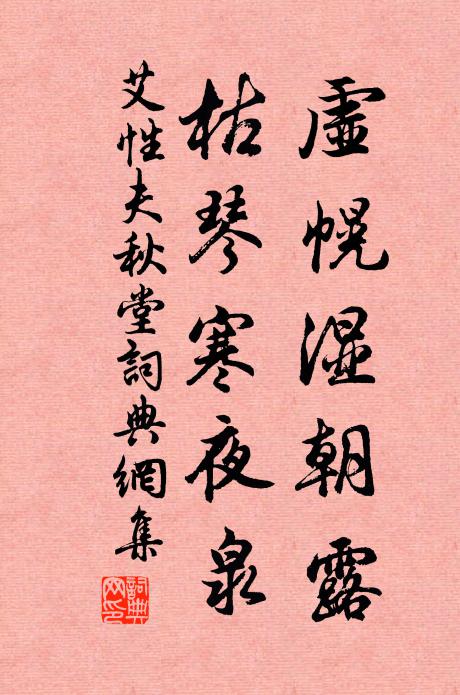 虛幌湿朝露
枯琴寒夜泉
艾性夫秋堂詞典網集
詞典網印